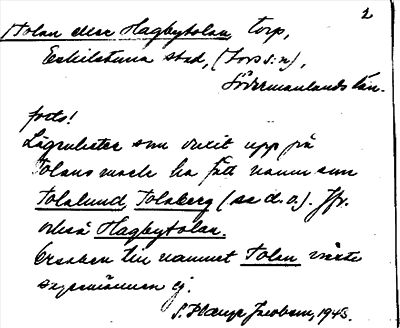 2
(Tolan eller Hagbytolan, torp,
Eskilstuna stad, (Fors s:n),
Södermanlands län.
forts!
Lägenheter som vuxit upp på
Tolans mark ha fått namn som
Tolalund, Tolaberg (se d.o.). Jfr.
också Hagbytolan.
Orsaken till namnet Tolan visste
sagesmännen ej.
S. Jacobson, 1945.